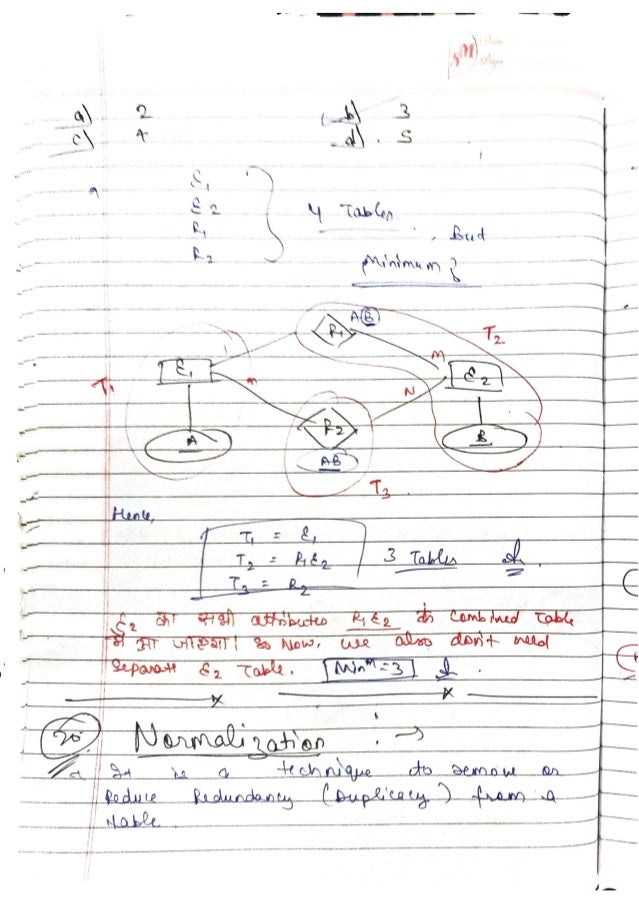 a) 2 (b) 3
c) 4 d) . 5
E1
E2
R1
R2
4 Tables
, But
Minimum?
AB
R1
T2
1
M
E1
E2
T1
n
N
R2
A
B
AB
T3
Hence,
T1 = E1
T2 = R1E2
T3 = R2
3 Tables
E2 का सभी attributes R1E2 के Combined Table
में आ जाएगा। So Now, we also don't need
Separate E2 Table. Min^m = 3
20. Normalization : →
It is a technique to remove or
Reduce Redundancy (Duplicacy) from a
table